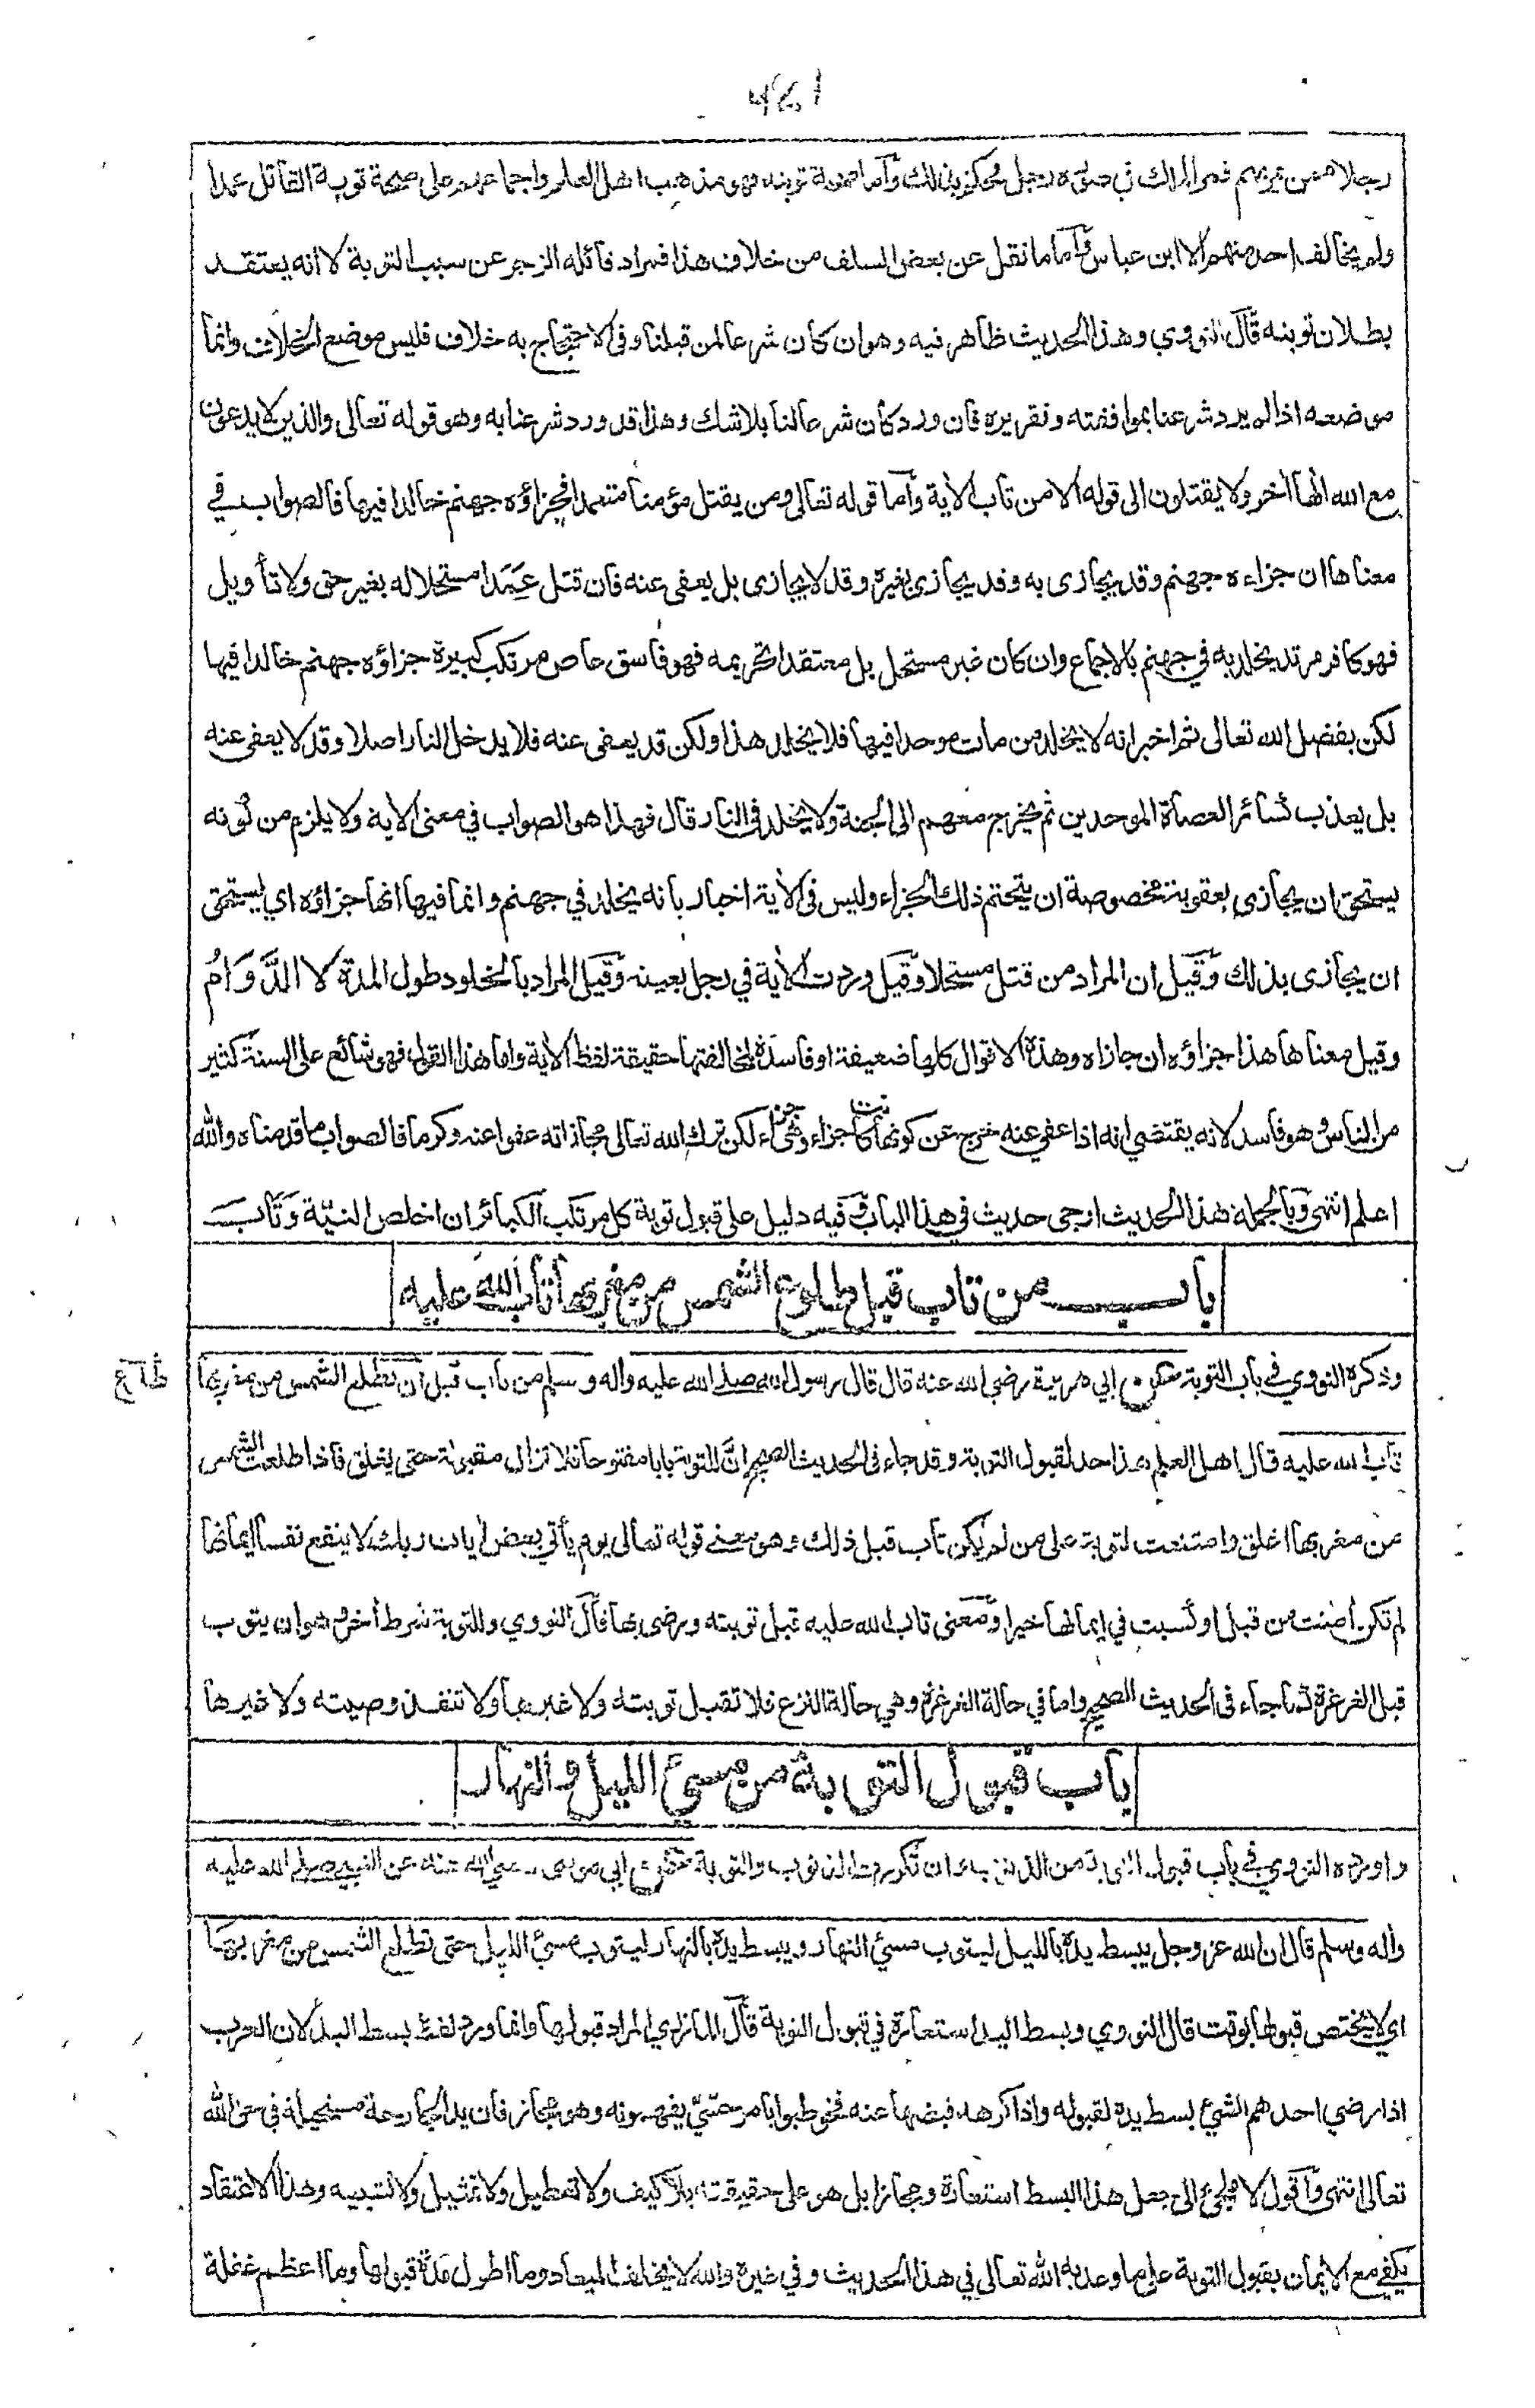 رجلا ممن يريدهم فمر الملك في صورة رجل فحكموه بذلك وأما صحة توبته فهو مذهب اهل العلم واجماعهم على صحة توبة القاتل عمدا
ولم يخالف احد منهم الا ابن عباس وأما ما نقل عن بعض السلف من خلاف هذا فمراد قائله الزجر عن سبب التوبة لا انه يعتقد
بطلان توبته قال النووي وهذا الحديث ظاهر فيه وهو ان كان شرعا لمن قبلنا وفى الاحتجاج به خلاف فليس موضع الخلاف وانما
موضعه اذا لم يرد شرعنا بموافقته وتقريره فان ورد كان شرعا لنا بلا شك وهذا قد ورد شرعنا به وهو قوله تعالى والذين لا يدعون
مع الله الها آخر ولا يقتلون الى قوله الا من تاب الآية وأما قوله تعالى ومن يقتل مؤمنا متعمدا فجزاؤه جهنم خالدا فيها فالصواب في
معناها ان جزاءه جهنم وقد يجازى به وقد يجازى بغيره وقد لا يجازى بل يعفى عنه فان قتل عمدا مستحلا له بغير حق ولا تأويل
فهو كافر مرتد يخلد به في جهنم بالاجماع وان كان غير مستحل بل معتقدا تحريمه فهو فاسق عاص مرتكب كبيرة جزاؤه جهنم خالدا فيها
لكن بفضل الله تعالى ثم اخبر انه لا يخلد من مات موحدا فيها فلا يخلد هذا ولكن قد يعفى عنه فلا يدخل النار اصلا وقد لا يعفى عنه
بل يعذب كسائر العصاة الموحدين ثم يخرج معهم الى الجنة ولا يخلد فى النار قال فهذا هو الصواب في معنى الآية ولا يلزم من كونه
يستحق ان يجازى بعقوبة مخصوصة ان يتحتم ذلك الجزاء وليس فى الآية اخبار بانه يخلد في جهنم وانما فيها انها جزاؤه اي يستحق
ان يجازى بذلك وقيل ان المراد من قتل مستحلا وقيل وردت الآية في رجل بعينه وقيل المراد بالخلود طول المدة لا الدَّوَامُ
وقيل معناها هذا جزاؤه ان جازاه وهذه الاقوال كلها ضعيفة او فاسدة لمخالفتها حقيقة لفظ الآية واما هذا القول فهو شائع على السنة كثير
من الناس وهو فاسد لانه يقتضي انه اذا عفي عنه خرج عن كونها كانت جزاء وهي جزاء لكن ترك الله تعالى مجازاته عفوا عنه وكرما فالصواب ما قدمناه والله
اعلم انتهى وبالجملة هذا الحديث ارجى حديث في هذا الباب وفيه دليل على قبول توبة كل مرتكب الكبائر ان اخلص النيّة وتاب
باب من تاب قبل طلوع الشمس من مغربها تاب الله عليه
وذكره النووي في باب التوبة عن ابي هريرة رضي الله عنه قال قال رسول الله صلى الله عليه وآله وسلم من تاب قبل ان تطلع الشمس من مغربها
تاب الله عليه قال اهل العلم هذا حد لقبول التوبة وقد جاء فى الحديث الصحيح انّ للتوبة بابا مفتوحا فلا تزال مقبولة حتى يغلق فاذا طلعت الشمس
من مغربها اغلق وامتنعت التوبة على من لم يكن تاب قبل ذلك وهو معنى قوله تعالى يوم يأتي بعض آيات ربك لا ينفع نفسا ايمانها
لم تكن آمنت من قبل او كسبت في ايمانها خيرا ومعنى تاب الله عليه قبل توبته ورضي بها قال النووي وللتوبة شرط آخر وهو ان يتوب
قبل الغرغرة كما جاء فى الحديث الصحيح واما في حالة الغرغرة وهي حالة النزع فلا تقبل توبته ولا غيرها ولا تنفذ وصيته ولا غيرها
باب قبول التوبة من مسيء الليل والنهار
واورده النووي في باب قبول التوبة من الذنوب وان تكررت الذنوب والتوبة عن ابي موسى رضي الله عنه عن النبي صلى الله عليه
وآله وسلم قال ان الله عز وجل يبسط يده بالليل ليتوب مسيء النهار ويبسط يده بالنهار ليتوب مسيء الليل حتى تطلع الشمس من مغربها
اي لا يختص قبولها بوقت قال النووي وبسط اليد استعارة في قبول التوبة قال المازري المراد قبولها وانما ورد لفظ بسط اليد لان العرب
اذا رضي احدهم الشيء بسط يده لقبوله واذا كرهه قبضها عنه فخوطبوا بامر حسّيّ يفهمونه وهو مجاز فان يد الجارحة مستحيلة في حق الله
تعالى انتهى وأقول لا ملجئ الى جعل هذا البسط استعارة ومجازا بل هو على حقيقته بلا كيف ولا تعطيل ولا تمثيل ولا تشبيه وهذا الاعتقاد
يكفي مع الايمان بقبول التوبة على ما وعد به الله تعالى في هذا الحديث وفي غيره والله لا يخلف الميعاد وما اطول مدة قبولها وما اعظم غفلة